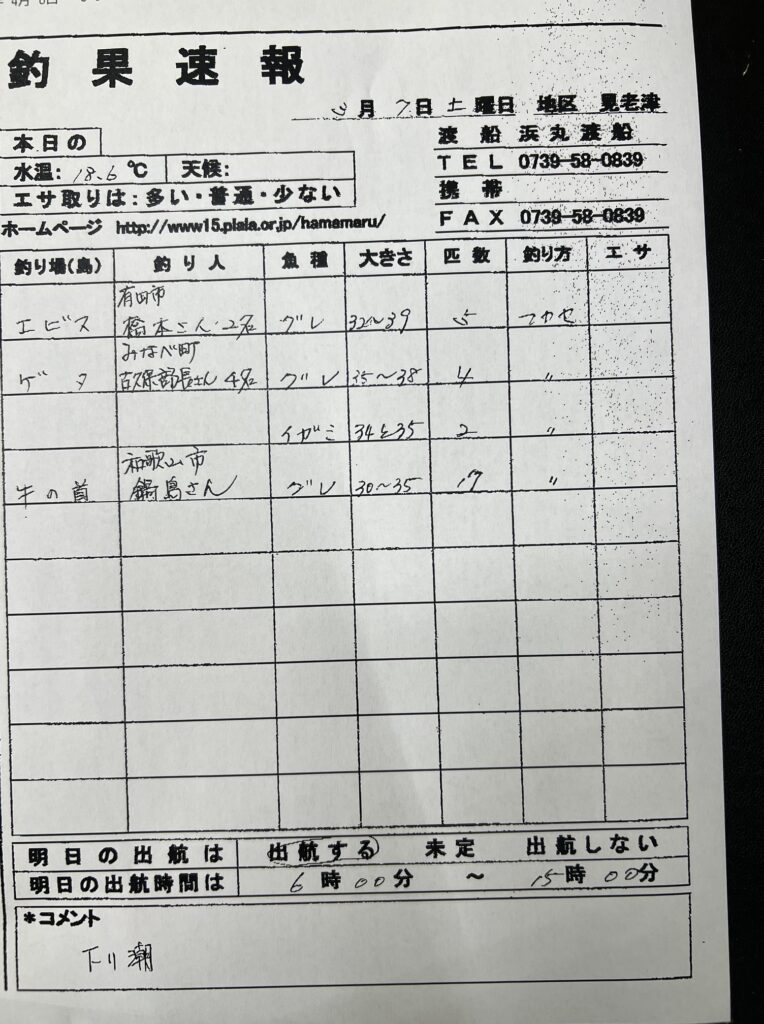 釣果速報
3月7日土曜日 地区 見老津
本日の
水温: 18.6℃ 天候:
エサ取りは:多い・普通・少ない
渡船 浜丸渡船
TEL 0739-58-0839
携帯
FAX 0739-58-0839
ホームページ http://www15.plala.or.jp/hamamaru/
釣り場(島) 釣り人 魚種 大きさ 匹数 釣り方 エサ
有田市
エビス 橋本さん・2名 グレ 32~39 5 フカセ
みなべ町
ゲタ 古久保部長さん 4名 グレ 35~38 4 〃
イガミ 34と35 2 〃
和歌山市
牛の首 鍋島さん グレ 30~35 17 〃
明日の出航は 出航する 未定 出航しない
明日の出航時間は 6時00分 ~ 15時00分
*コメント
下り潮